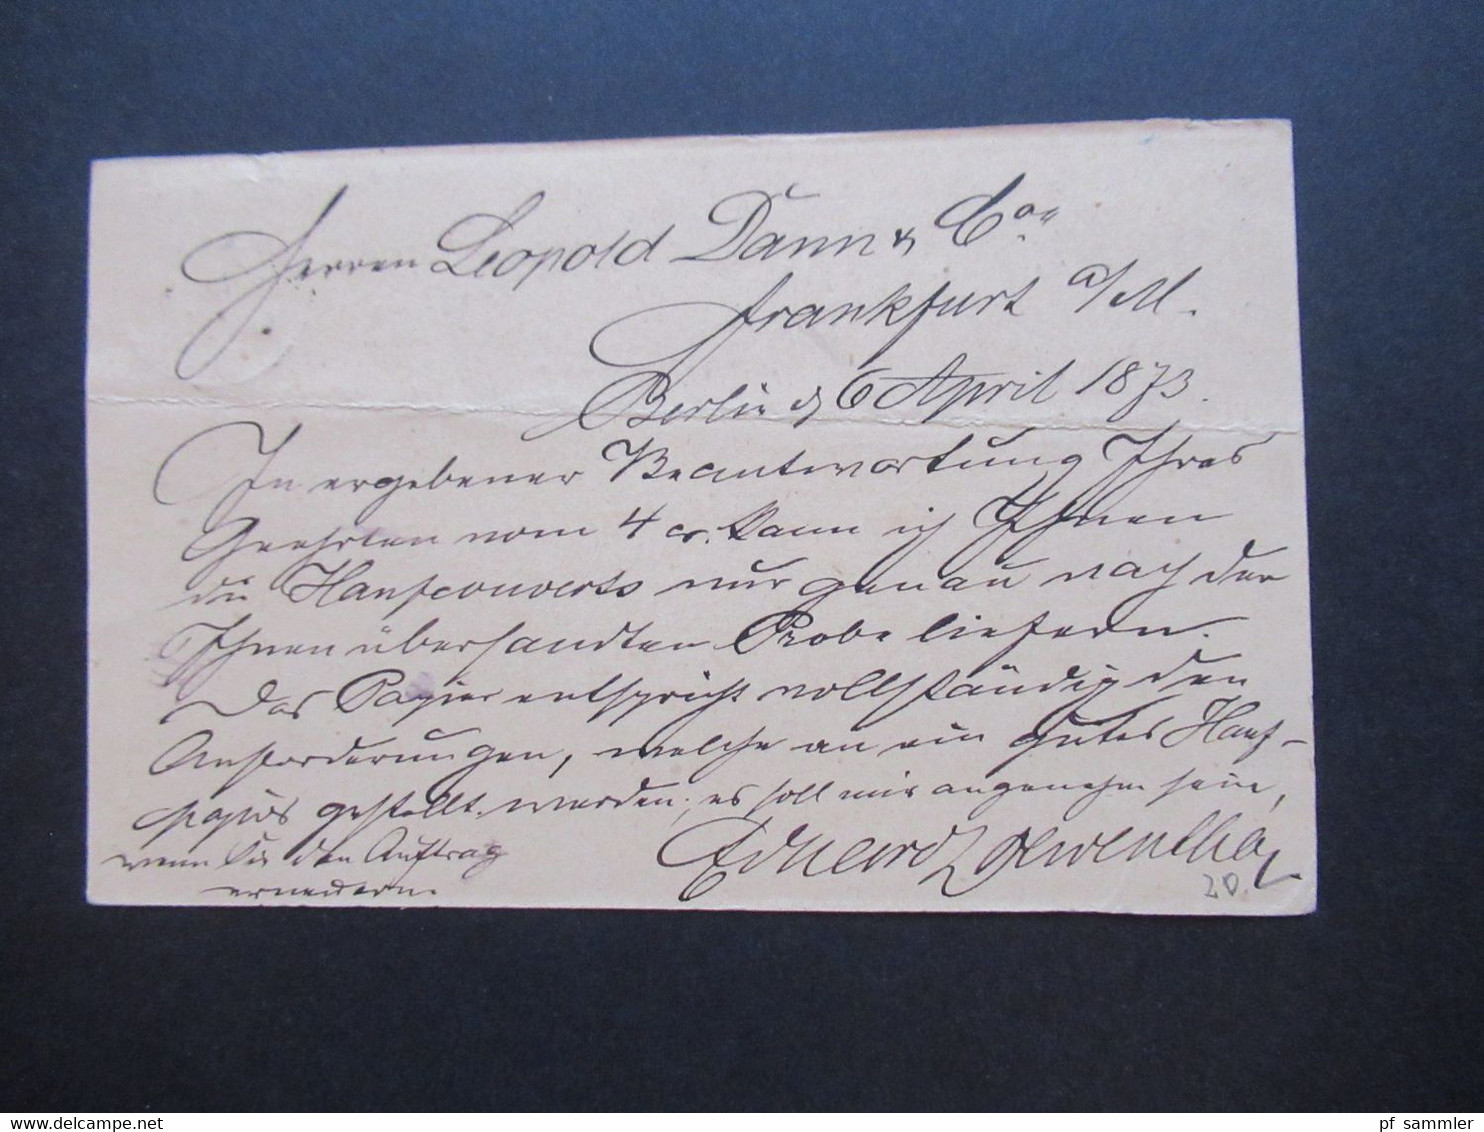 Herren Leopold Dann & Co.
Frankfurt a/M.
Berlin d 6 April 1873.
In ergebener Beantwortung Ihres
Geehrten vom 4 cr. kann ich Ihnen
die Hanfcouverts nur genau nach der
Ihnen übersandten Probe liefern.
Das Papier entspricht vollständig den
Anforderungen, welche an ein gutes Hanf-
papier gestellt werden; es soll mir angenehm sein,
wenn Sie den Auftrag
erneuern.
Eduard Loewenthal
20.
delcampe.net
pf_sammler